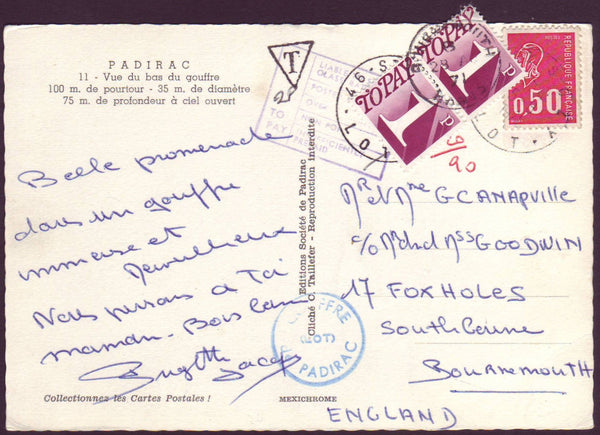 PADIRAC
11 - Vue du bas du gouffre
100 m. de pourtour - 35 m. de diamètre
75 m. de profondeur à ciel ouvert
Belle promenade
dans un gouffre
immense et
merveilleux
Nous pensons à Toi
maman. Bons
Brigitte Jacques
Collectionnez les Cartes Postales !
MEXICHROME
Editions Société de Padirac
Cliché C. Taillefer - Reproduction interdite
T
20
LIABLE
POSTE
NOT
TO
PAY
INSUFFICIENTLY
PREPAID
TO PAY
1
p
TO PAY
1
p
9/90
46 - LOT
RÉPUBLIQUE FRANÇAISE
0,50
GOUFFRE
(LOT)
PADIRAC
Mr et Mme G CANAPVILLE
c/o Mr and Mss GOODWIN
17 FOXHOLES
Southbourne
Bournemouth
ENGLAND